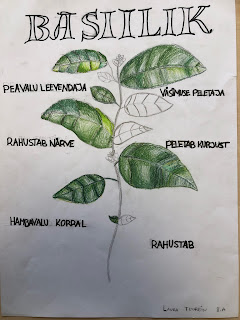 BASIILIK
PEAVALU LEEVENDAJA
VÄSIMUSE PELETAJA
RAHUSTAB NÄRVE
PELETAB KURJUST
HAMBAVALU KORRAL
RAHUSTAB
8.A